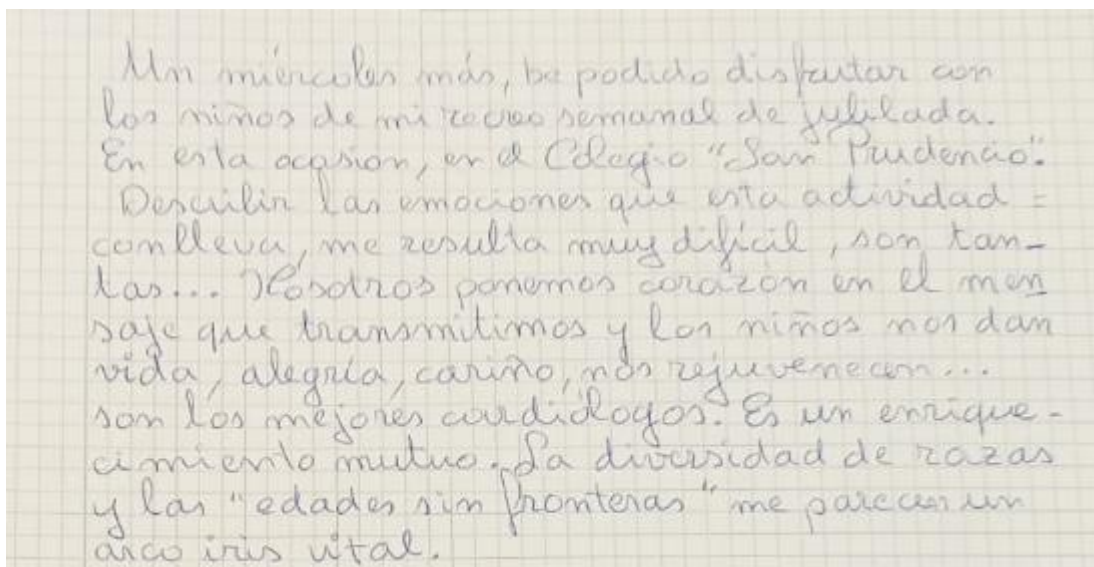 Un miércoles más, he podido disfrutar con
los niños de mi recreo semanal de jubilada.
En esta ocasion, en el Colegio "San Prudencio".
Describir las emociones que esta actividad =
conlleva, me resulta muy difícil, son tan-
tas... Nosotros ponemos corazón en el men
saje que transmitimos y los niños nos dan
vida, alegría, cariño, nos rejuvenecen...
son los mejores cardiólogos. Es un enrique-
cimiento mutuo. La diversidad de razas
y las "edades sin fronteras" me parecen un
arco iris vital.